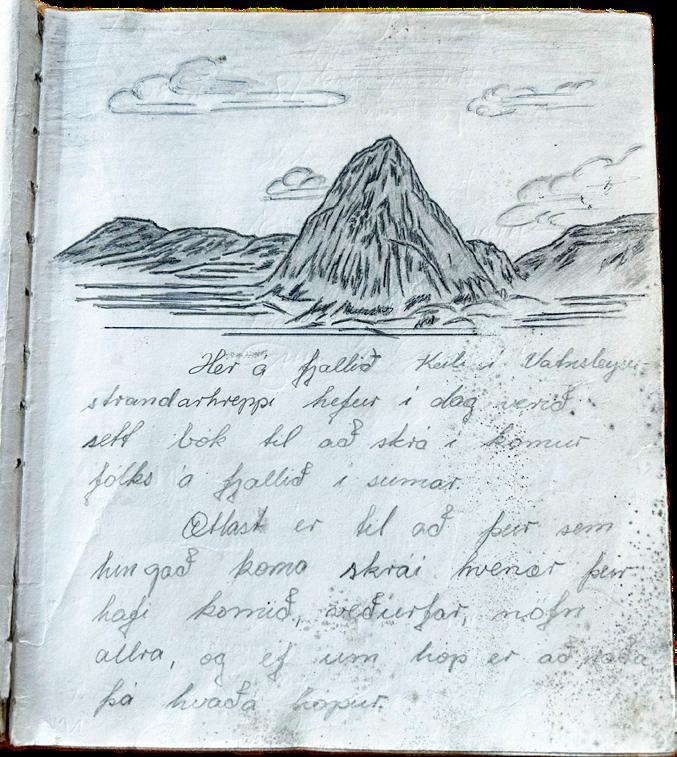 Hér á fjallið Keili í Vatnsleysu-
strandarhreppi hefur í dag verið
sett bók til að skrá í komur
fólks á fjallið í sumar.
Ætlast er til að þeir sem
hingað koma skrái hvenær þeir
hafi komið, veðurfar, nöfn
allra, og ef um hóp er að ræða
þá hvaða hópur.